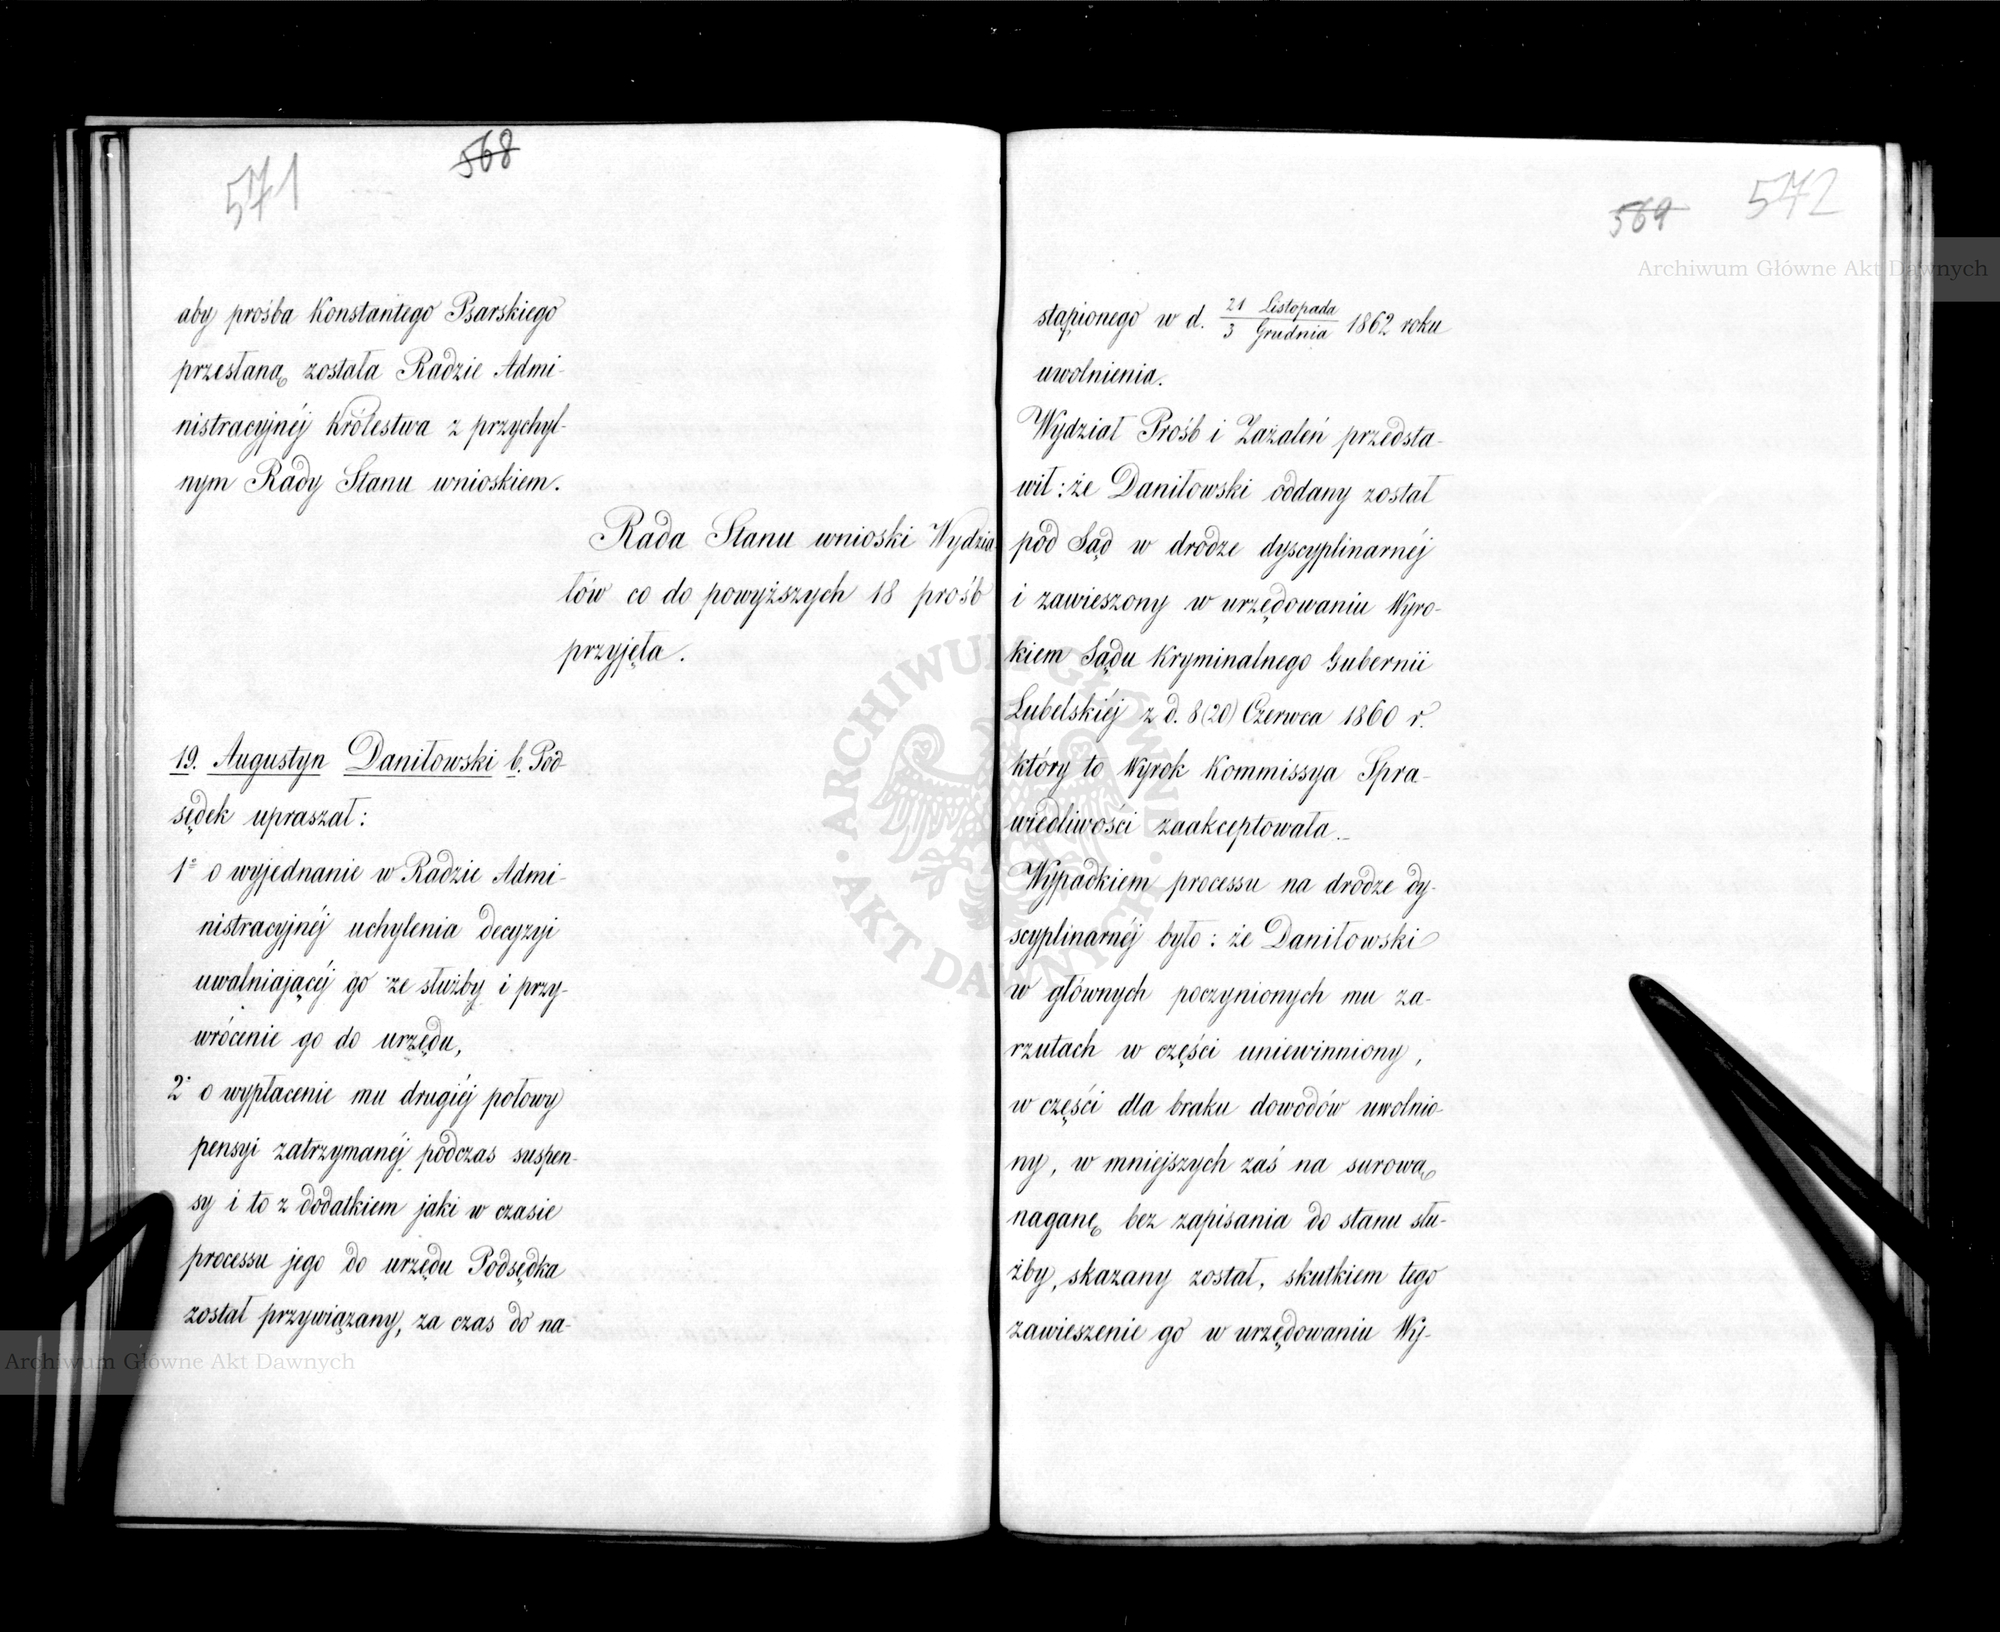 571
568
aby prośba Konstantego Psarskiego
przesłaną została Radzie Admi-
nistracyjnéj Królestwa z przychyl-
nym Rady Stanu wnioskiem.
Rada Stanu wnioski Wydzia-
łów co do powyższych 18 prośb
przyjęła.
19. Augustyn Daniłowski b. Pod-
sędek upraszał:
1° o wyjednanie w Radzie Admi-
nistracyjnéj uchylenia decyzyi
uwalniającéj go ze służby i przy-
wrócenie go do urzędu,
2° o wypłacenie mu drugiéj połowy
pensyi zatrzymanéj podczas suspen-
sy i to z dodatkiem jaki w czasie
processu jego do urzędu Podsędka
został przywiązany, za czas do na-
569
572
stąpionego w d. 21 Listopada / 3 Grudnia 1862 roku
uwolnienia.
Wydział Prośb i Zażaleń przedsta-
wił: że Daniłowski oddany został
pod Sąd w drodze dyscyplinarnéj
i zawieszony w urzędowaniu Wyro-
kiem Sądu Kryminalnego Gubernii
Lubelskiéj z d. 8 (20) Czerwca 1860 r.
który to Wyrok Kommissya Spra-
wiedliwości zaakceptowała.
Wypadkiem processu na drodze dy-
scyplinarnéj było: że Daniłowski
w głównych poczynionych mu za-
rzutach w części uniewinniony,
w części dla braku dowodów uwolnio-
ny, w mniejszych zaś na surową
naganę bez zapisania do stanu słu-
żby, skazany został, skutkiem tego
zawieszenie go w urzędowaniu Wy-
Archiwum Główne Akt Dawnych
ARCHIWUM GŁÓWNE · AKT DAWNYCH ·
Archiwum Główne Akt Dawnych